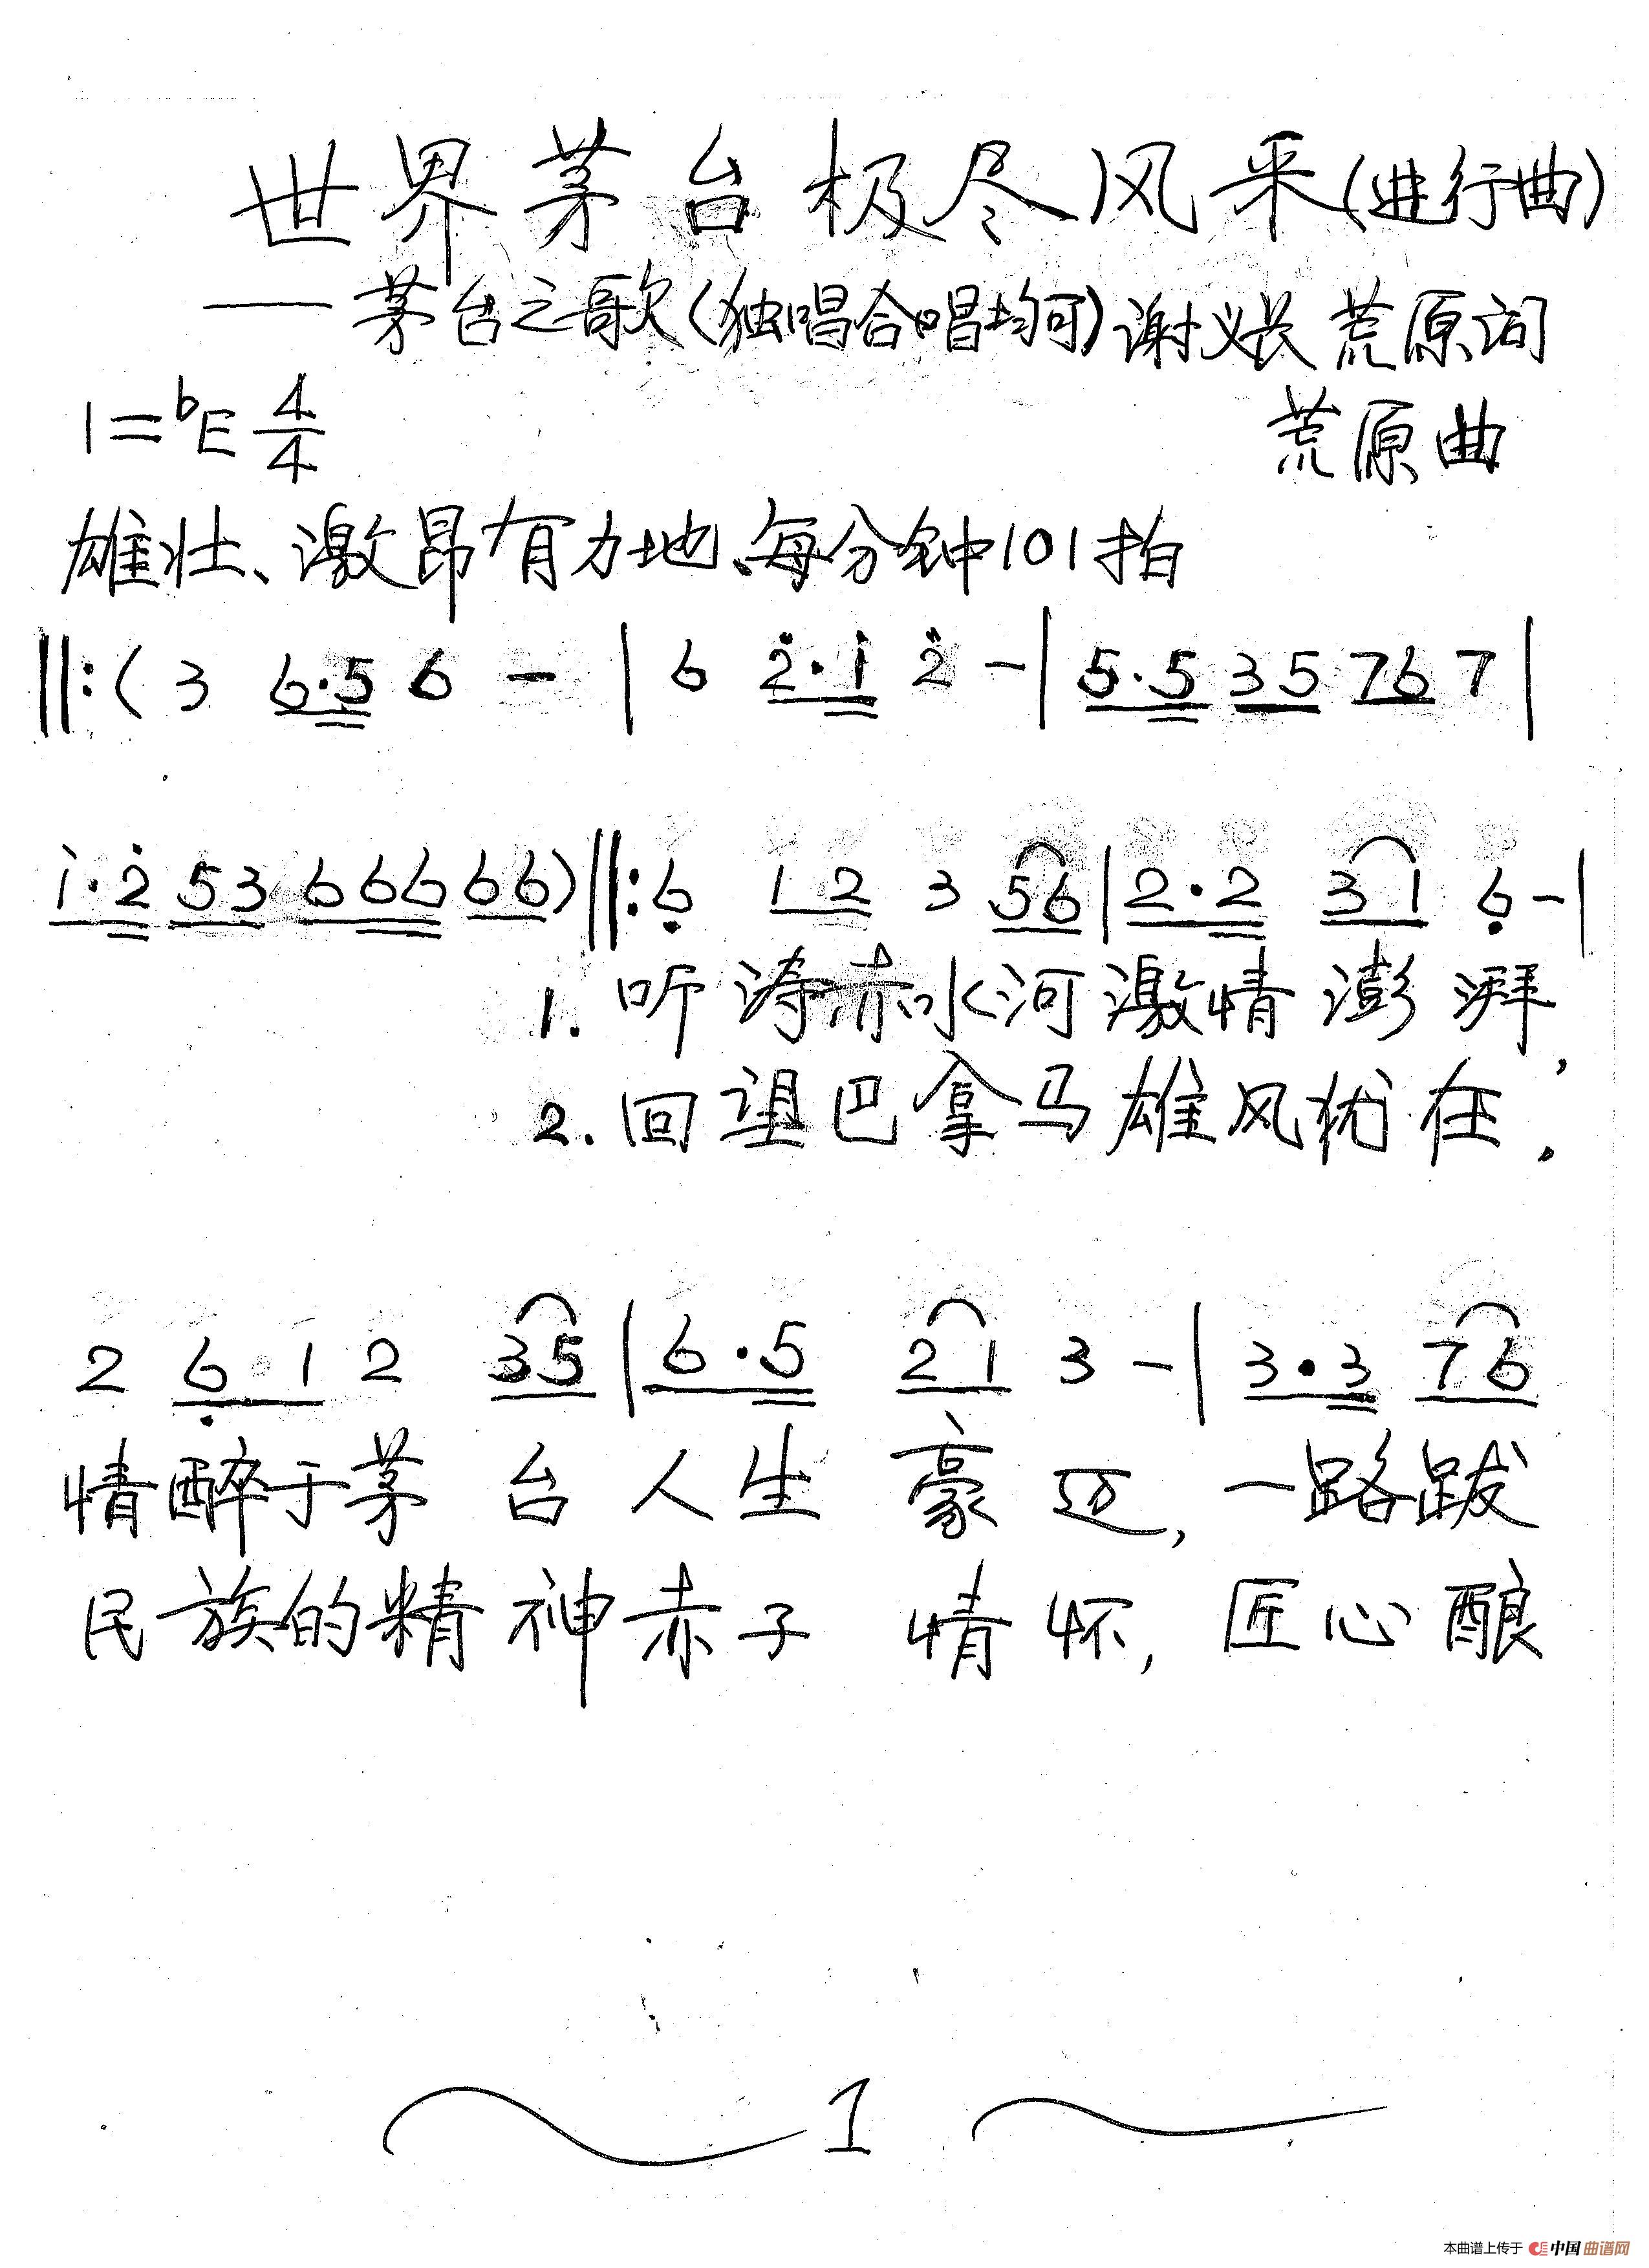 世界茅台极尽风采(进行曲)
——茅台之歌(独唱合唱均可)谢义长 荒原词
1=bE 4/4
荒原曲
雄壮、激昂有力地、每分钟101拍
‖:( 3 6·5 6 - | 6 2̇·1̇ 2̇ - | 5·5 35 76 7 |
1̇·2̇ 53 666 66)‖:6̣ 12 3 56 | 2·2 31 6̣ - |
1. 听涛赤水河激情澎湃,
2. 回望巴拿马雄风犹在.
2 6̣1 2 35 | 6·5 21 3 - | 3·3 76
情醉于茅台人生豪迈,一路跋
民族的精神赤子情怀,匠心酿
1
本曲谱上传于 中国曲谱网